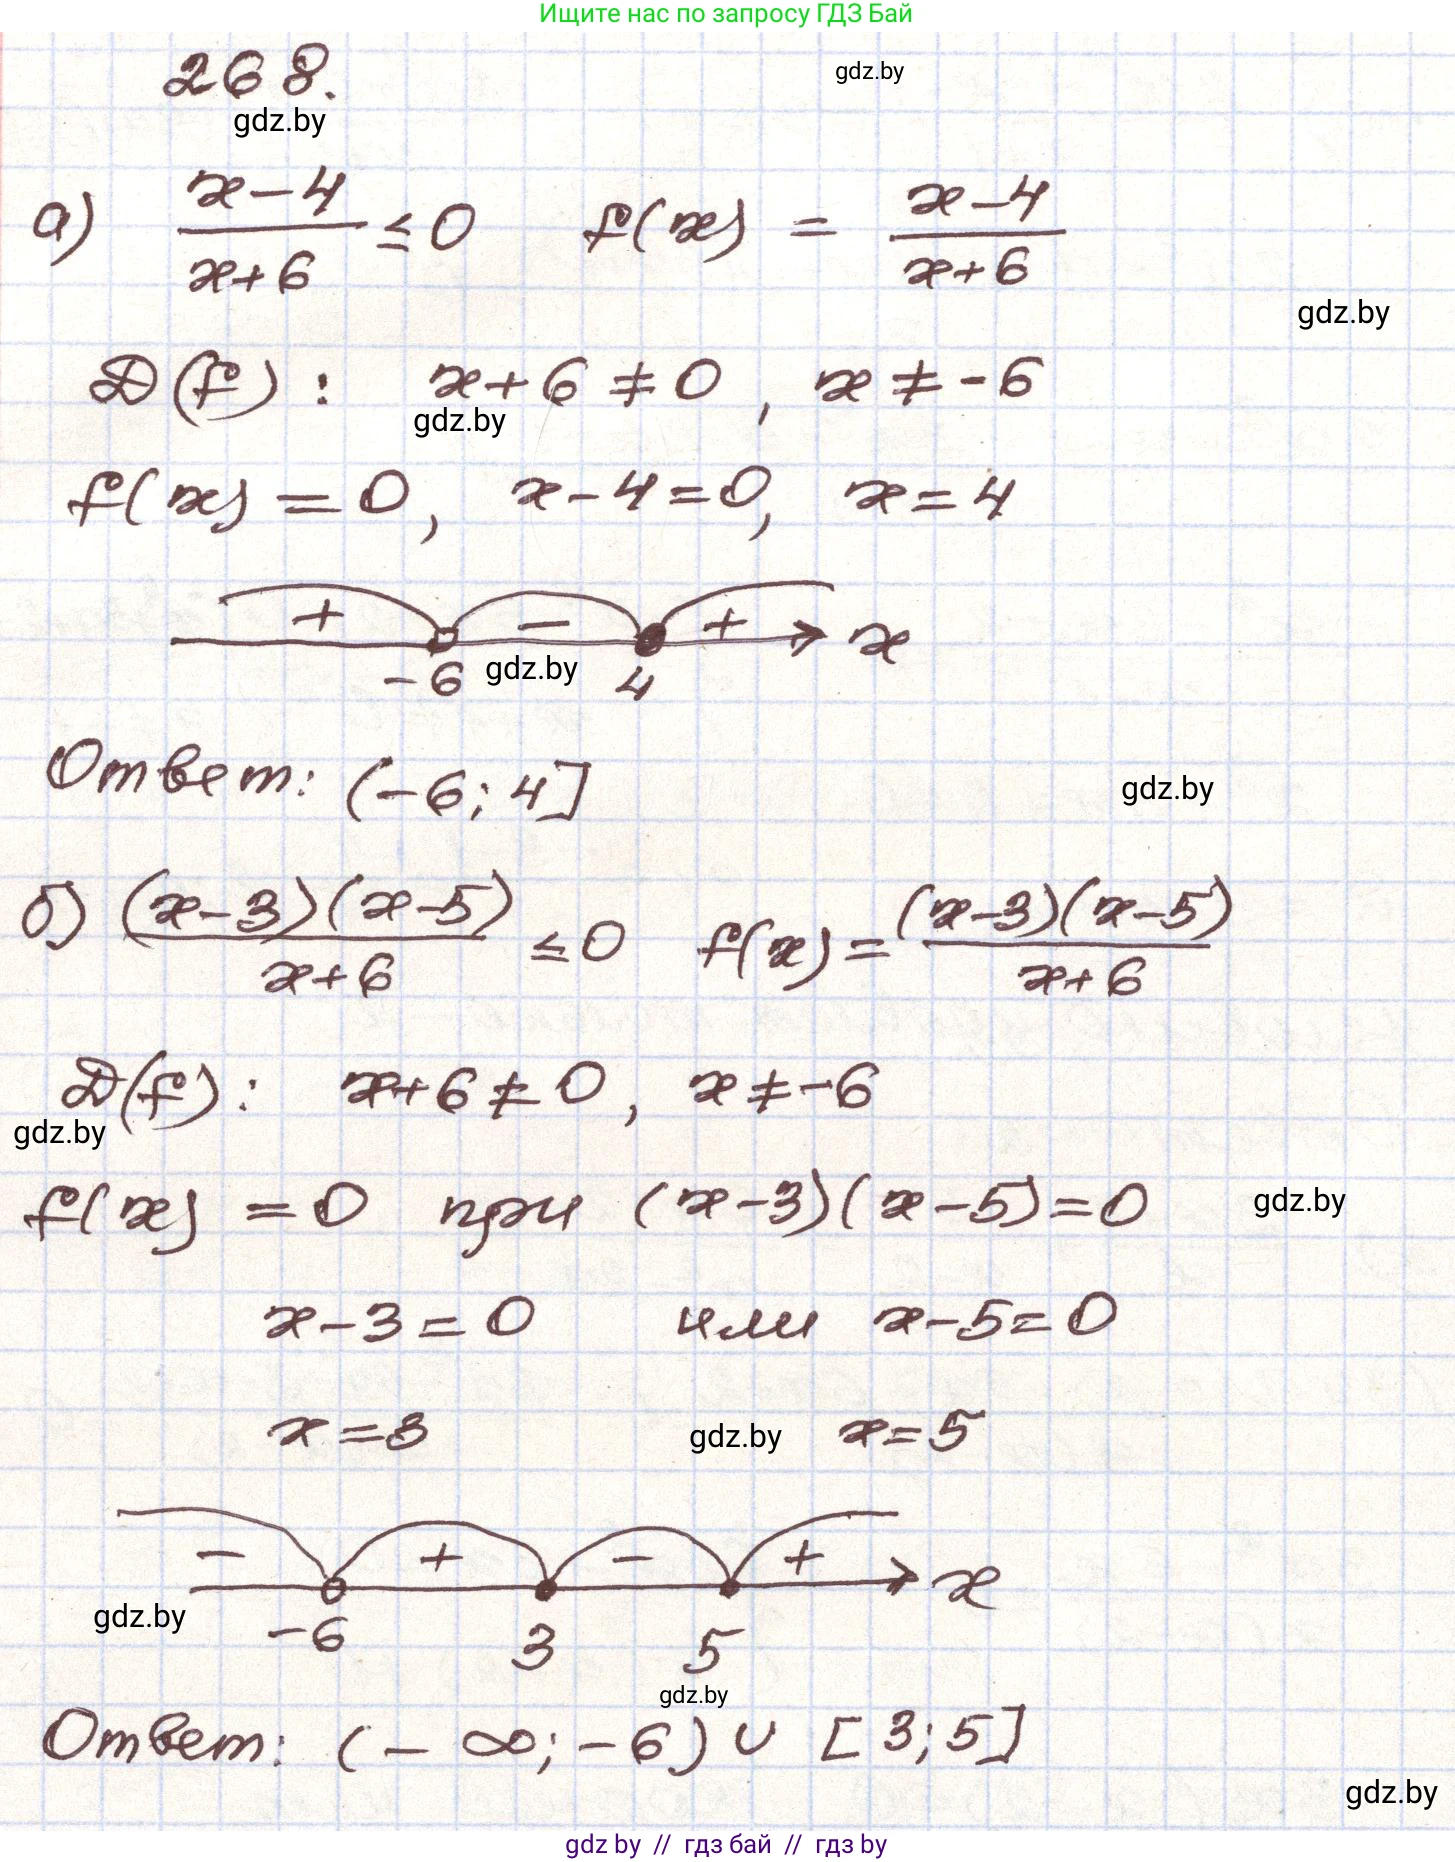 Ищите нас по запросу ГДЗ Бай
268.
gdz.by
gdz.by
а) (x-4)/(x+6) ≤ 0 f(x) = (x-4)/(x+6)
gdz.by
D(f): x+6 ≠ 0, x ≠ -6
gdz.by
f(x) = 0, x-4=0, x=4
+ - + x
-6 gdz.by 4
Ответ: (-6; 4]
gdz.by
б) ((x-3)(x-5))/(x+6) ≤ 0 f(x) = ((x-3)(x-5))/(x+6)
D(f): x+6 ≠ 0, x ≠ -6
gdz.by
f(x) = 0 при (x-3)(x-5)=0
gdz.by
x-3=0 или x-5=0
x=3 gdz.by x=5
- + - + x
gdz.by
-6 3 5
gdz.by
Ответ: (-∞; -6) ∪ [3; 5]
gdz.by
gdz by // гдз бай // гдз by